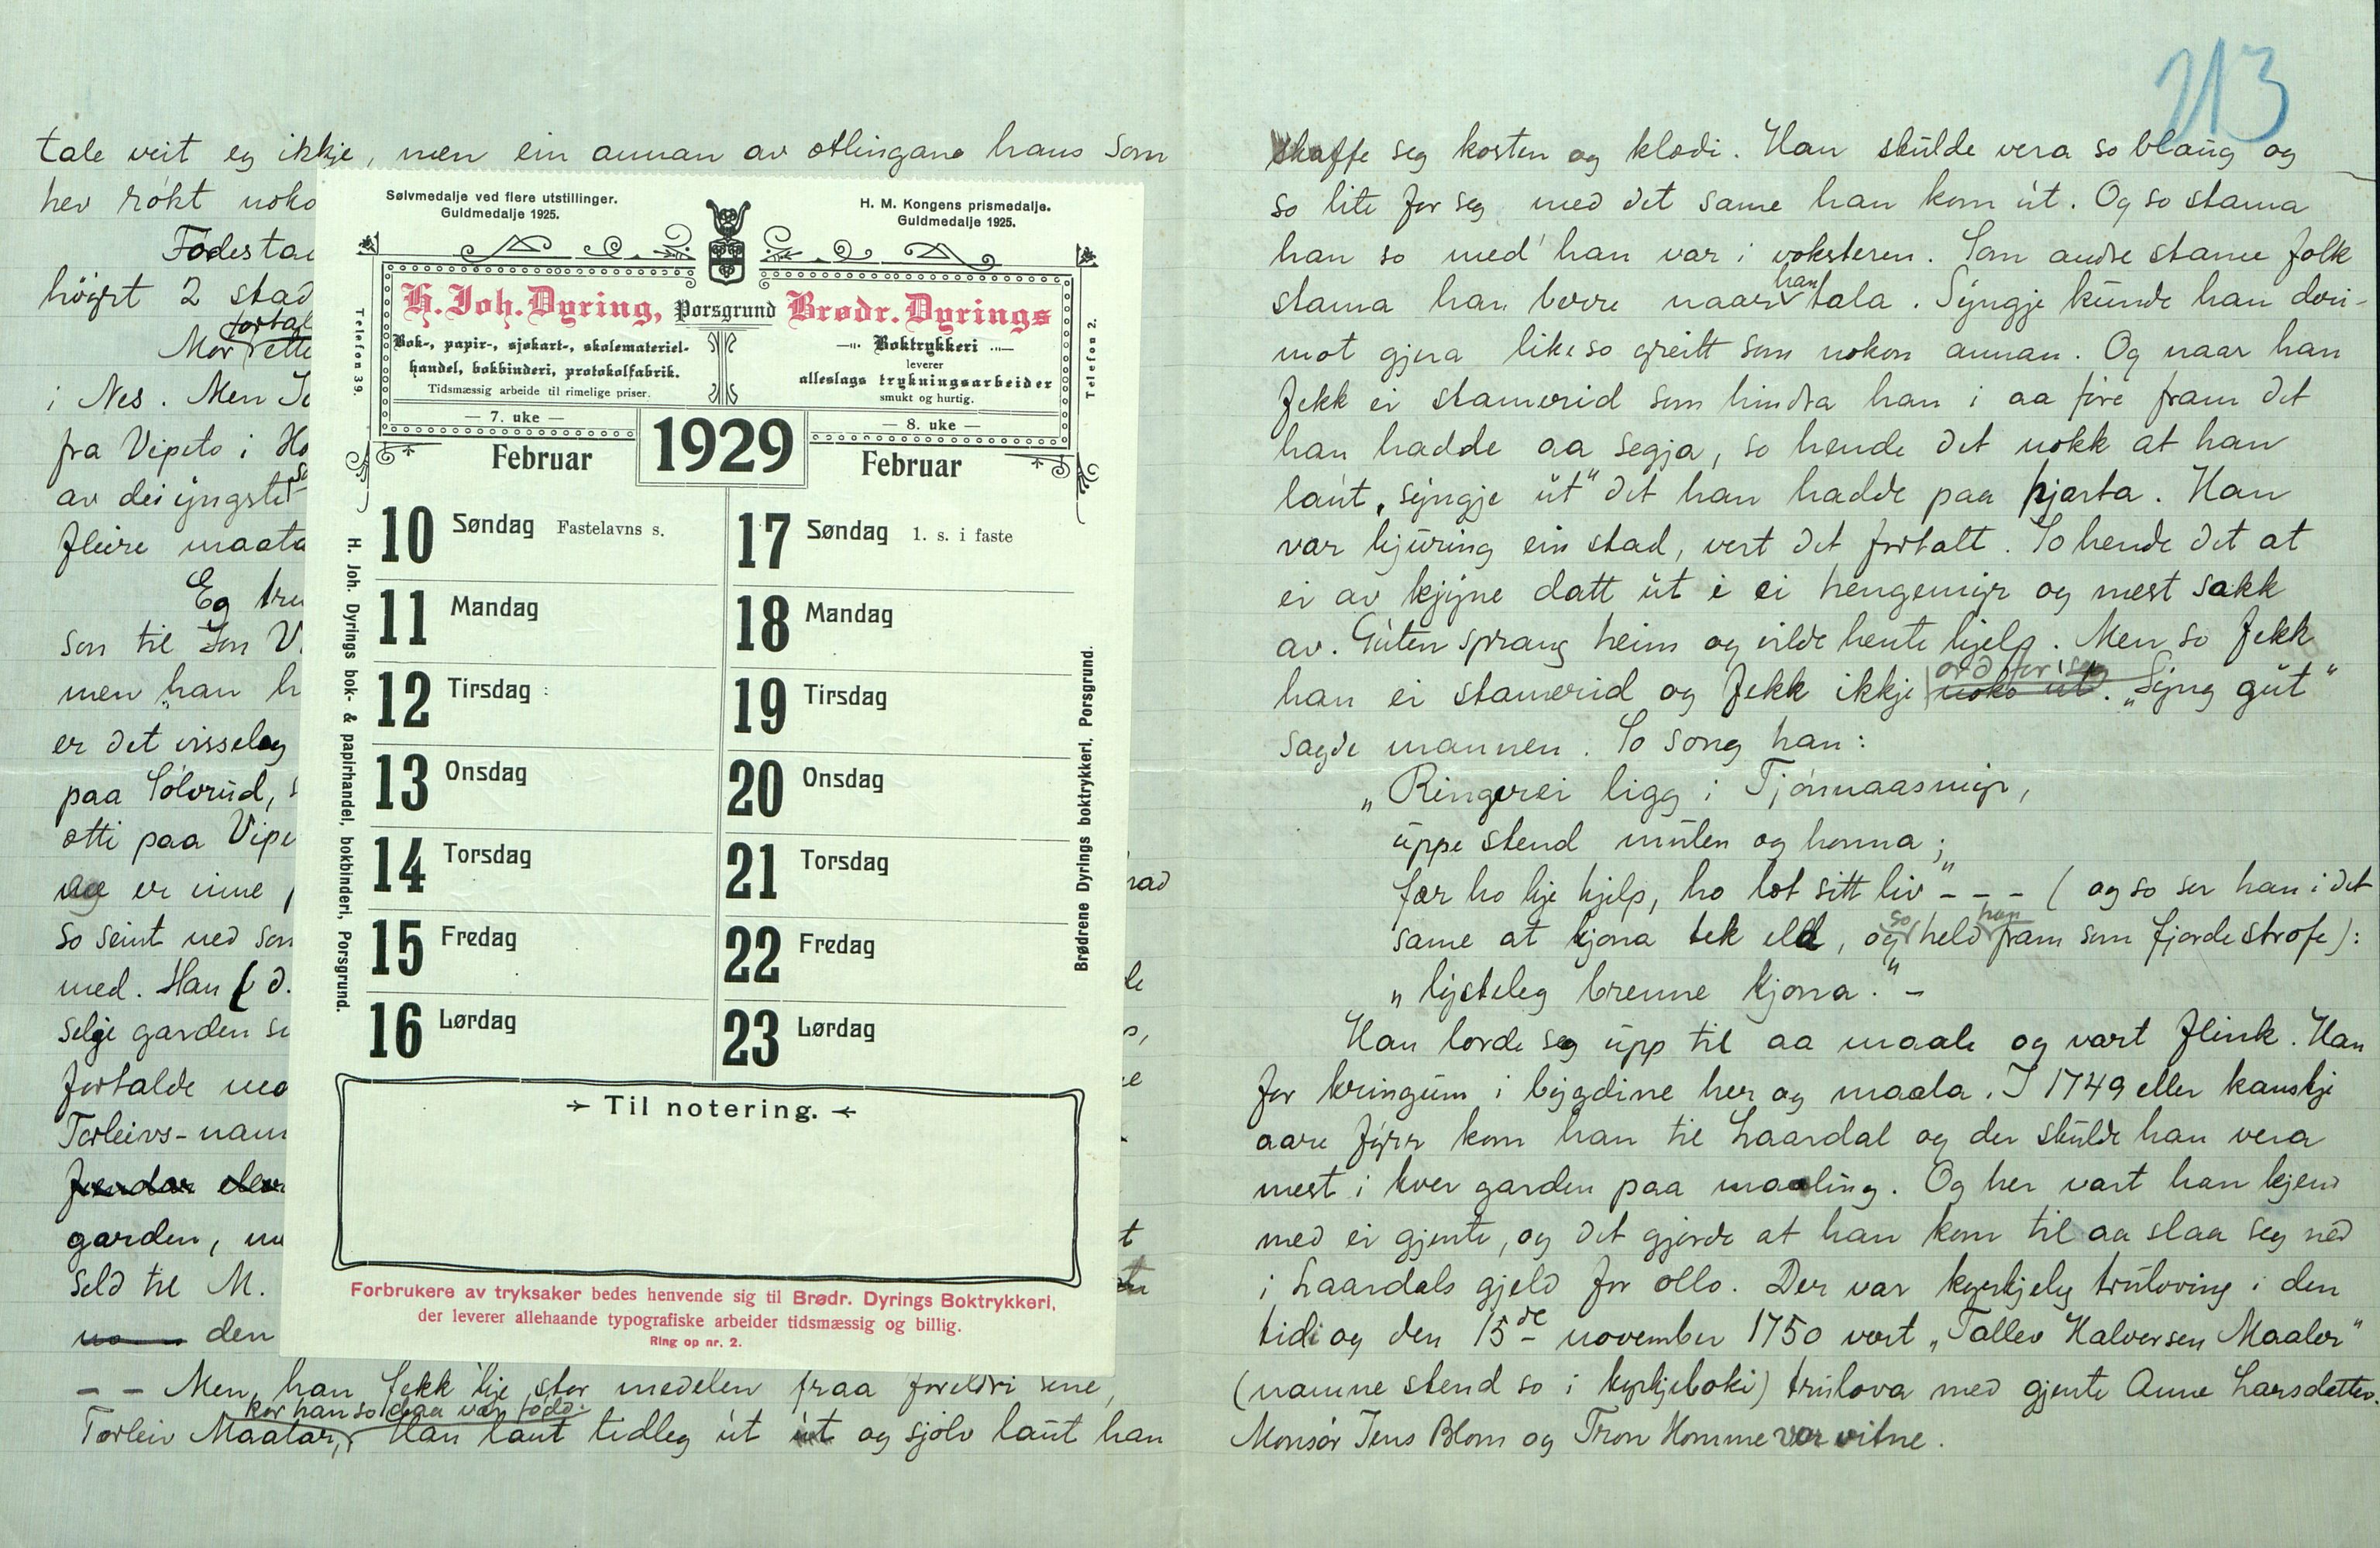 tale veit eg ikkje, men ein annan av ætlingane hans som
hev røkt noko
Fødestad
høyrt 2 stad
fortal
Mor rette
i Nes. Men
fra Vipeto i
av dei yngste
fleire maata
Eg tru
son til Jon V.
men han h
er det visseleg
paa Sølvrud,
ætti paa Vipe
er inne
so seint ned son
med. Han
selje garden
fortalde
Torleivs-nam
garden,
Seld til M.
den
rad
le
t
– – Men han fekk 'kje stor medelen fraa foreldri sine,
kor han so daa var fødd.
Torleiv Maalar, Han laut tidleg út út og sjølv laut han
Sølvmedalje ved flere utstillinger.
Guldmedalje 1925.
H. M. Kongens prismedalje.
Guldmedalje 1925.
H. Joh. Dyring, Porsgrund Brødr. Dyrings
Telefon 39.
Bok-, papir-, sjøkart-, skolemateriel-
handel, bokbinderi, protokolfabrik.
Tidsmæssig arbeide til rimelige priser.
Boktrykkeri
leverer
alleslags trykningsarbeider
smukt og hurtig.
Telefon 2.
— 7. uke —
1929
— 8. uke —
Februar
Februar
10 Søndag Fastelavns s.
11 Mandag
12 Tirsdag
13 Onsdag
14 Torsdag
15 Fredag
16 Lørdag
17 Søndag 1. s. i faste
18 Mandag
19 Tirsdag
20 Onsdag
21 Torsdag
22 Fredag
23 Lørdag
H. Joh. Dyrings bok- & papirhandel, bokbinderi, Porsgrund.
Brødrene Dyrings boktrykkeri, Porsgrund.
Til notering.
Forbrukere av tryksaker bedes henvende sig til Brødr. Dyrings Boktrykkeri,
der leverer allehaande typografiske arbeider tidsmæssig og billig.
Ring op nr. 2.
213
skaffe seg kosten og klædi. Han skulde vera so blaug og
so lite for seg med det same han kom út. Og so stama
han so med han var i voksteren. Som andre stame folk
stama han berre naar han tala. Syngje kunde han deri-
mot gjera likeso greitt som nokon annan. Og naar han
fekk ei stamerid som hindra han i aa føre fram det
han hadde aa segja, so hende det nokk at han
laut „syngje út" det han hadde paa hjarta. Han
var hjuring ein stad, vert det fortalt. So hende det at
ei av kjyne datt út i ei hengemyr og mest sakk
av. Guten sprang heim og vilde hente hjelp. Men so fekk
ord for seg
han ei stamerid og fekk ikkje noko út. „Syng gut"
sagde mannen. So song han:
„Ringerei ligg i Tjønnaasmyr,
uppe stend mulen og honna;
fær ho kje hjelp, ho læt sitt liv" – – – (og so ser han i det
same at kjona tek eld, og so held han fram som fjorde strofe):
„lysteleg brenne kjona." –
Han lærde seg upp til aa maale og vart flink. Han
for kringum i bygdine her og maala. I 1749 eller kanskje
aare fyrr kom han til Laardal og der skulde han vera
mest i kver garden paa maaling. Og her vart han kjend
med ei gjente, og det gjorde at han kom til aa slaa seg ned
i Laardals gjeld for ollo. Der var kyrkjeleg truloving i den
tidi og den 15de november 1750 vart „Tallev Halversen Maaler"
(namne stend so i kyrkjeboki) trulova med gjente Anne Larsdatter.
Monsør Jens Blom og Tron Homme var vitne.